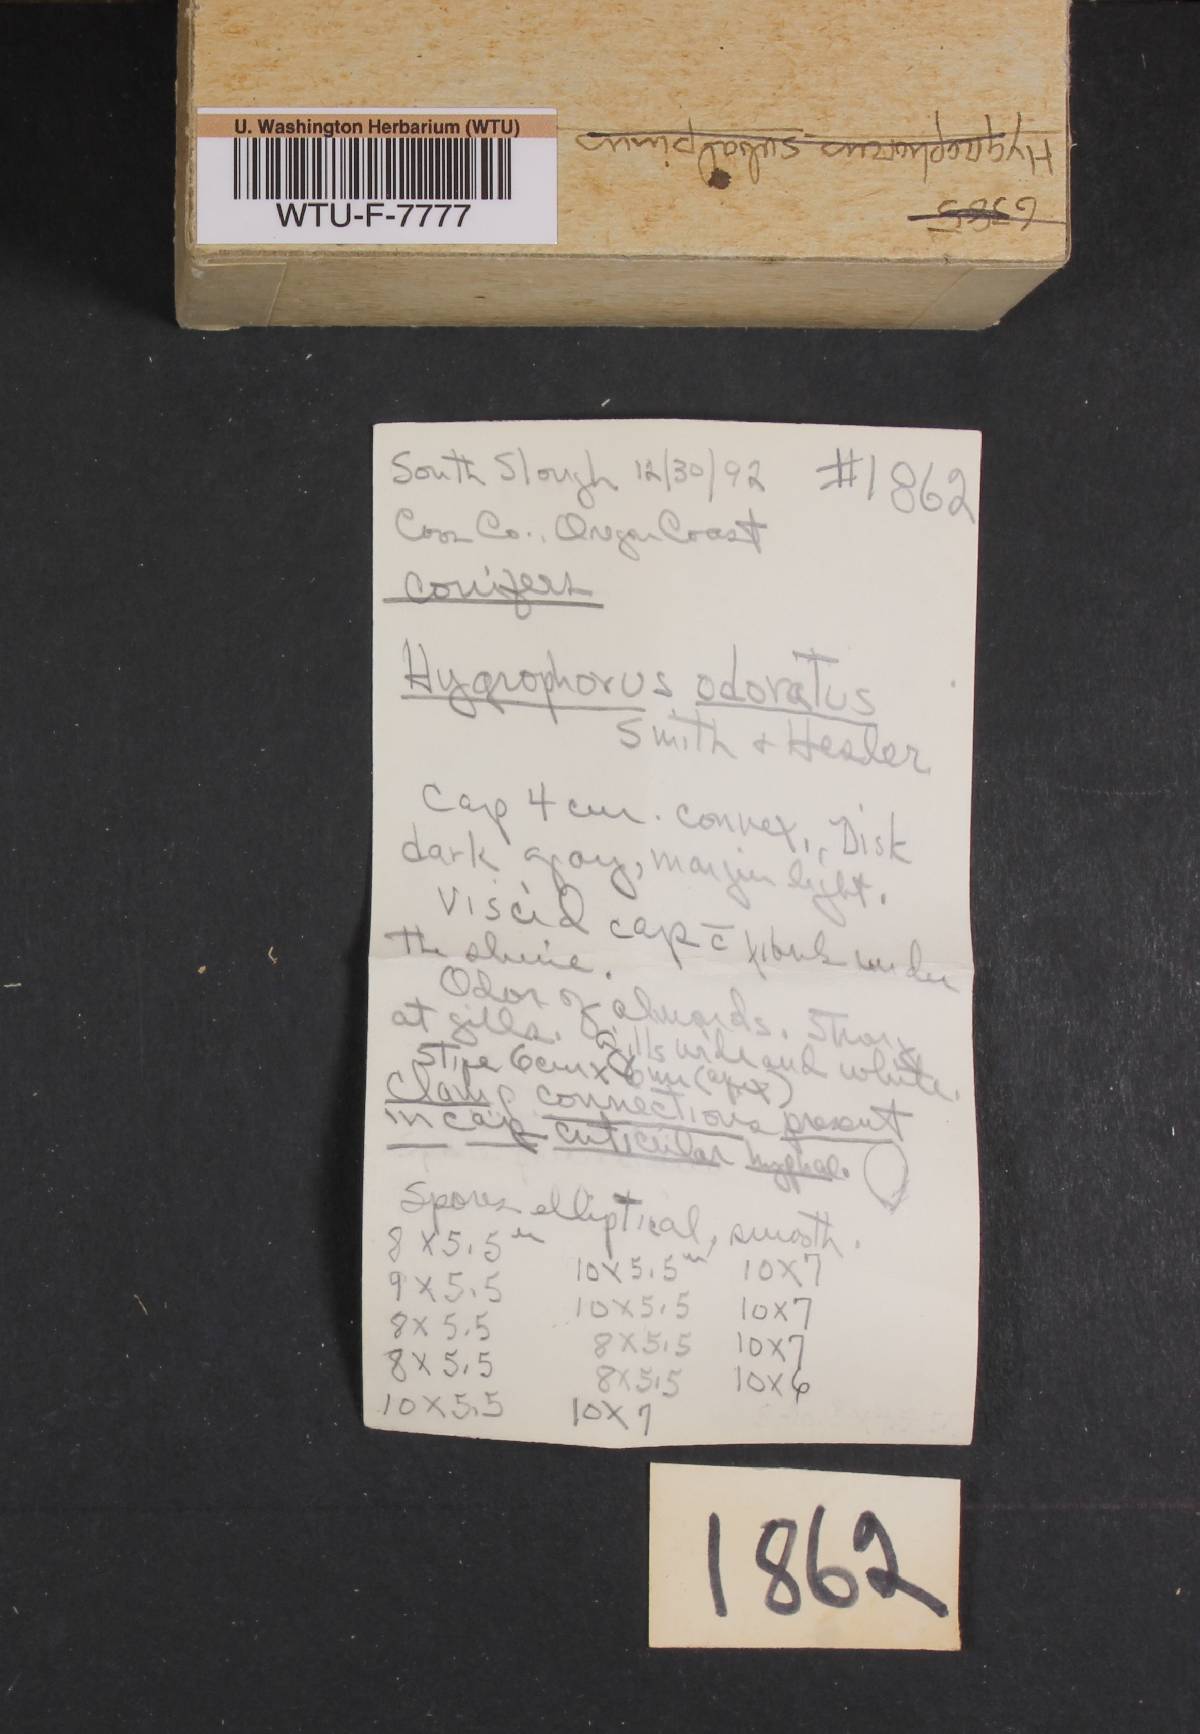 U. Washington Herbarium (WTU)
WTU-F-7777
Hygrophorus subalpinus
6385
South Slough 12/30/92 #1862
Coos Co., Oregon Coast
conifers
Hygrophorus odoratus
Smith & Hesler
Cap 4 cm. convex, Disk
dark gray, margin light.
Viscid cap c̄ fibrils under
the slime.
Odor of almonds. Strong
at gills. Gills wide and white.
Stipe 6cm x 6mm (apex)
Clamp connections present
in cap cuticular hyphae.
Spores elliptical, smooth.
8 X 5.5 m 10 X 5.5 m 10 X 7
9 X 5.5 10 X 5.5 10 X 7
8 X 5.5 8 X 5.5 10 X 7
8 X 5.5 8 X 5.5 10 X 6
10 X 5.5 10 X 7
1862